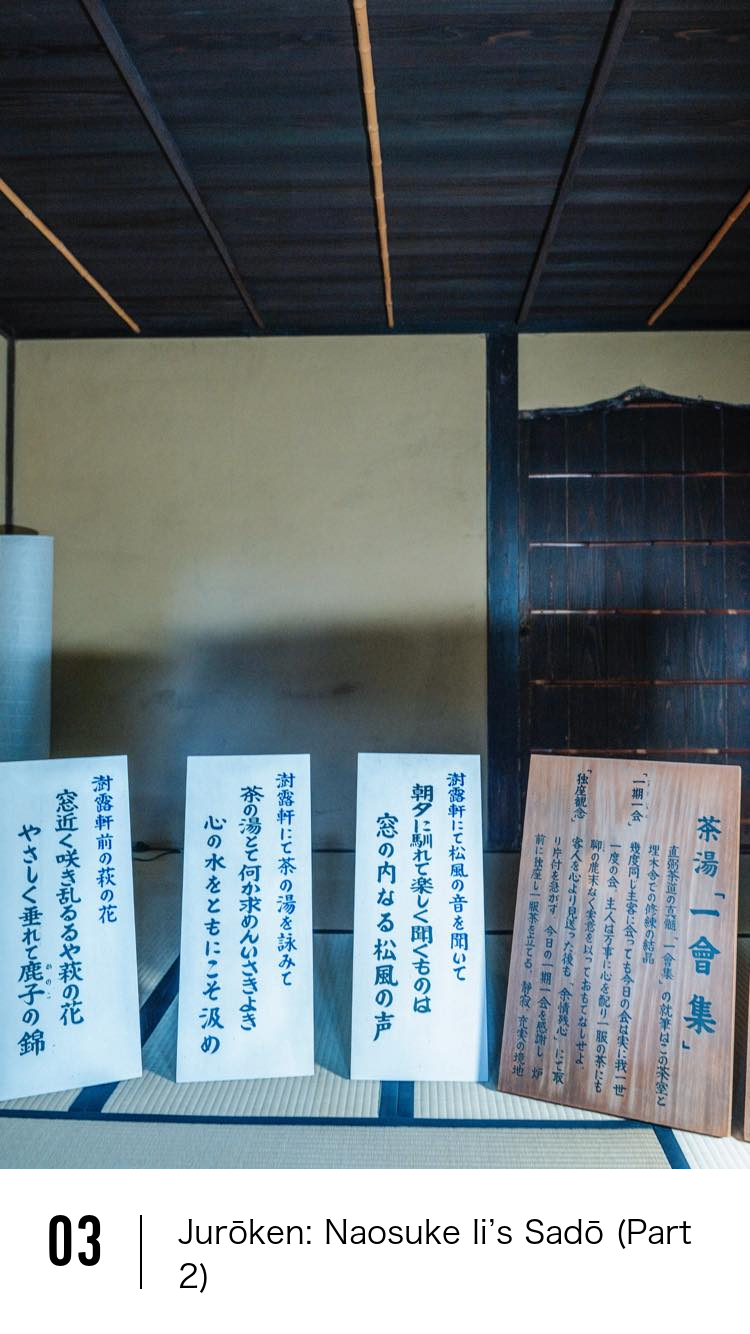 茶湯「一會集」
直弼茶道の真髄「一會集」の就筆はこの茶室と
埋木舎での修練の結晶
「一期一会」
幾度同じ主客に会っても今日の会は実に我一世
一度の会、主人は万事に心を配り一服の茶にも
聊の麁末なく実意を以っておもてなしせよ
「独座観念」
客人を心より見送った後も「余情残心」にて取
り片付を急がす、今日の一期一会を感謝し 炉
前に独座し一服茶を立てる、静寂、充実の境地
澍露軒にて松風の音を聞いて
朝夕に馴れて楽しく聞くものは
窓の内なる松風の声
澍露軒にて茶の湯を詠みて
茶の湯とて何か求めんいさきよき
心の水をともにこそ汲め
澍露軒前の萩の花
窓近く咲き乱るるや萩の花
やさしく垂れて鹿子の錦
かのこ
03
Jurōken: Naosuke Ii’s Sadō (Part
2)